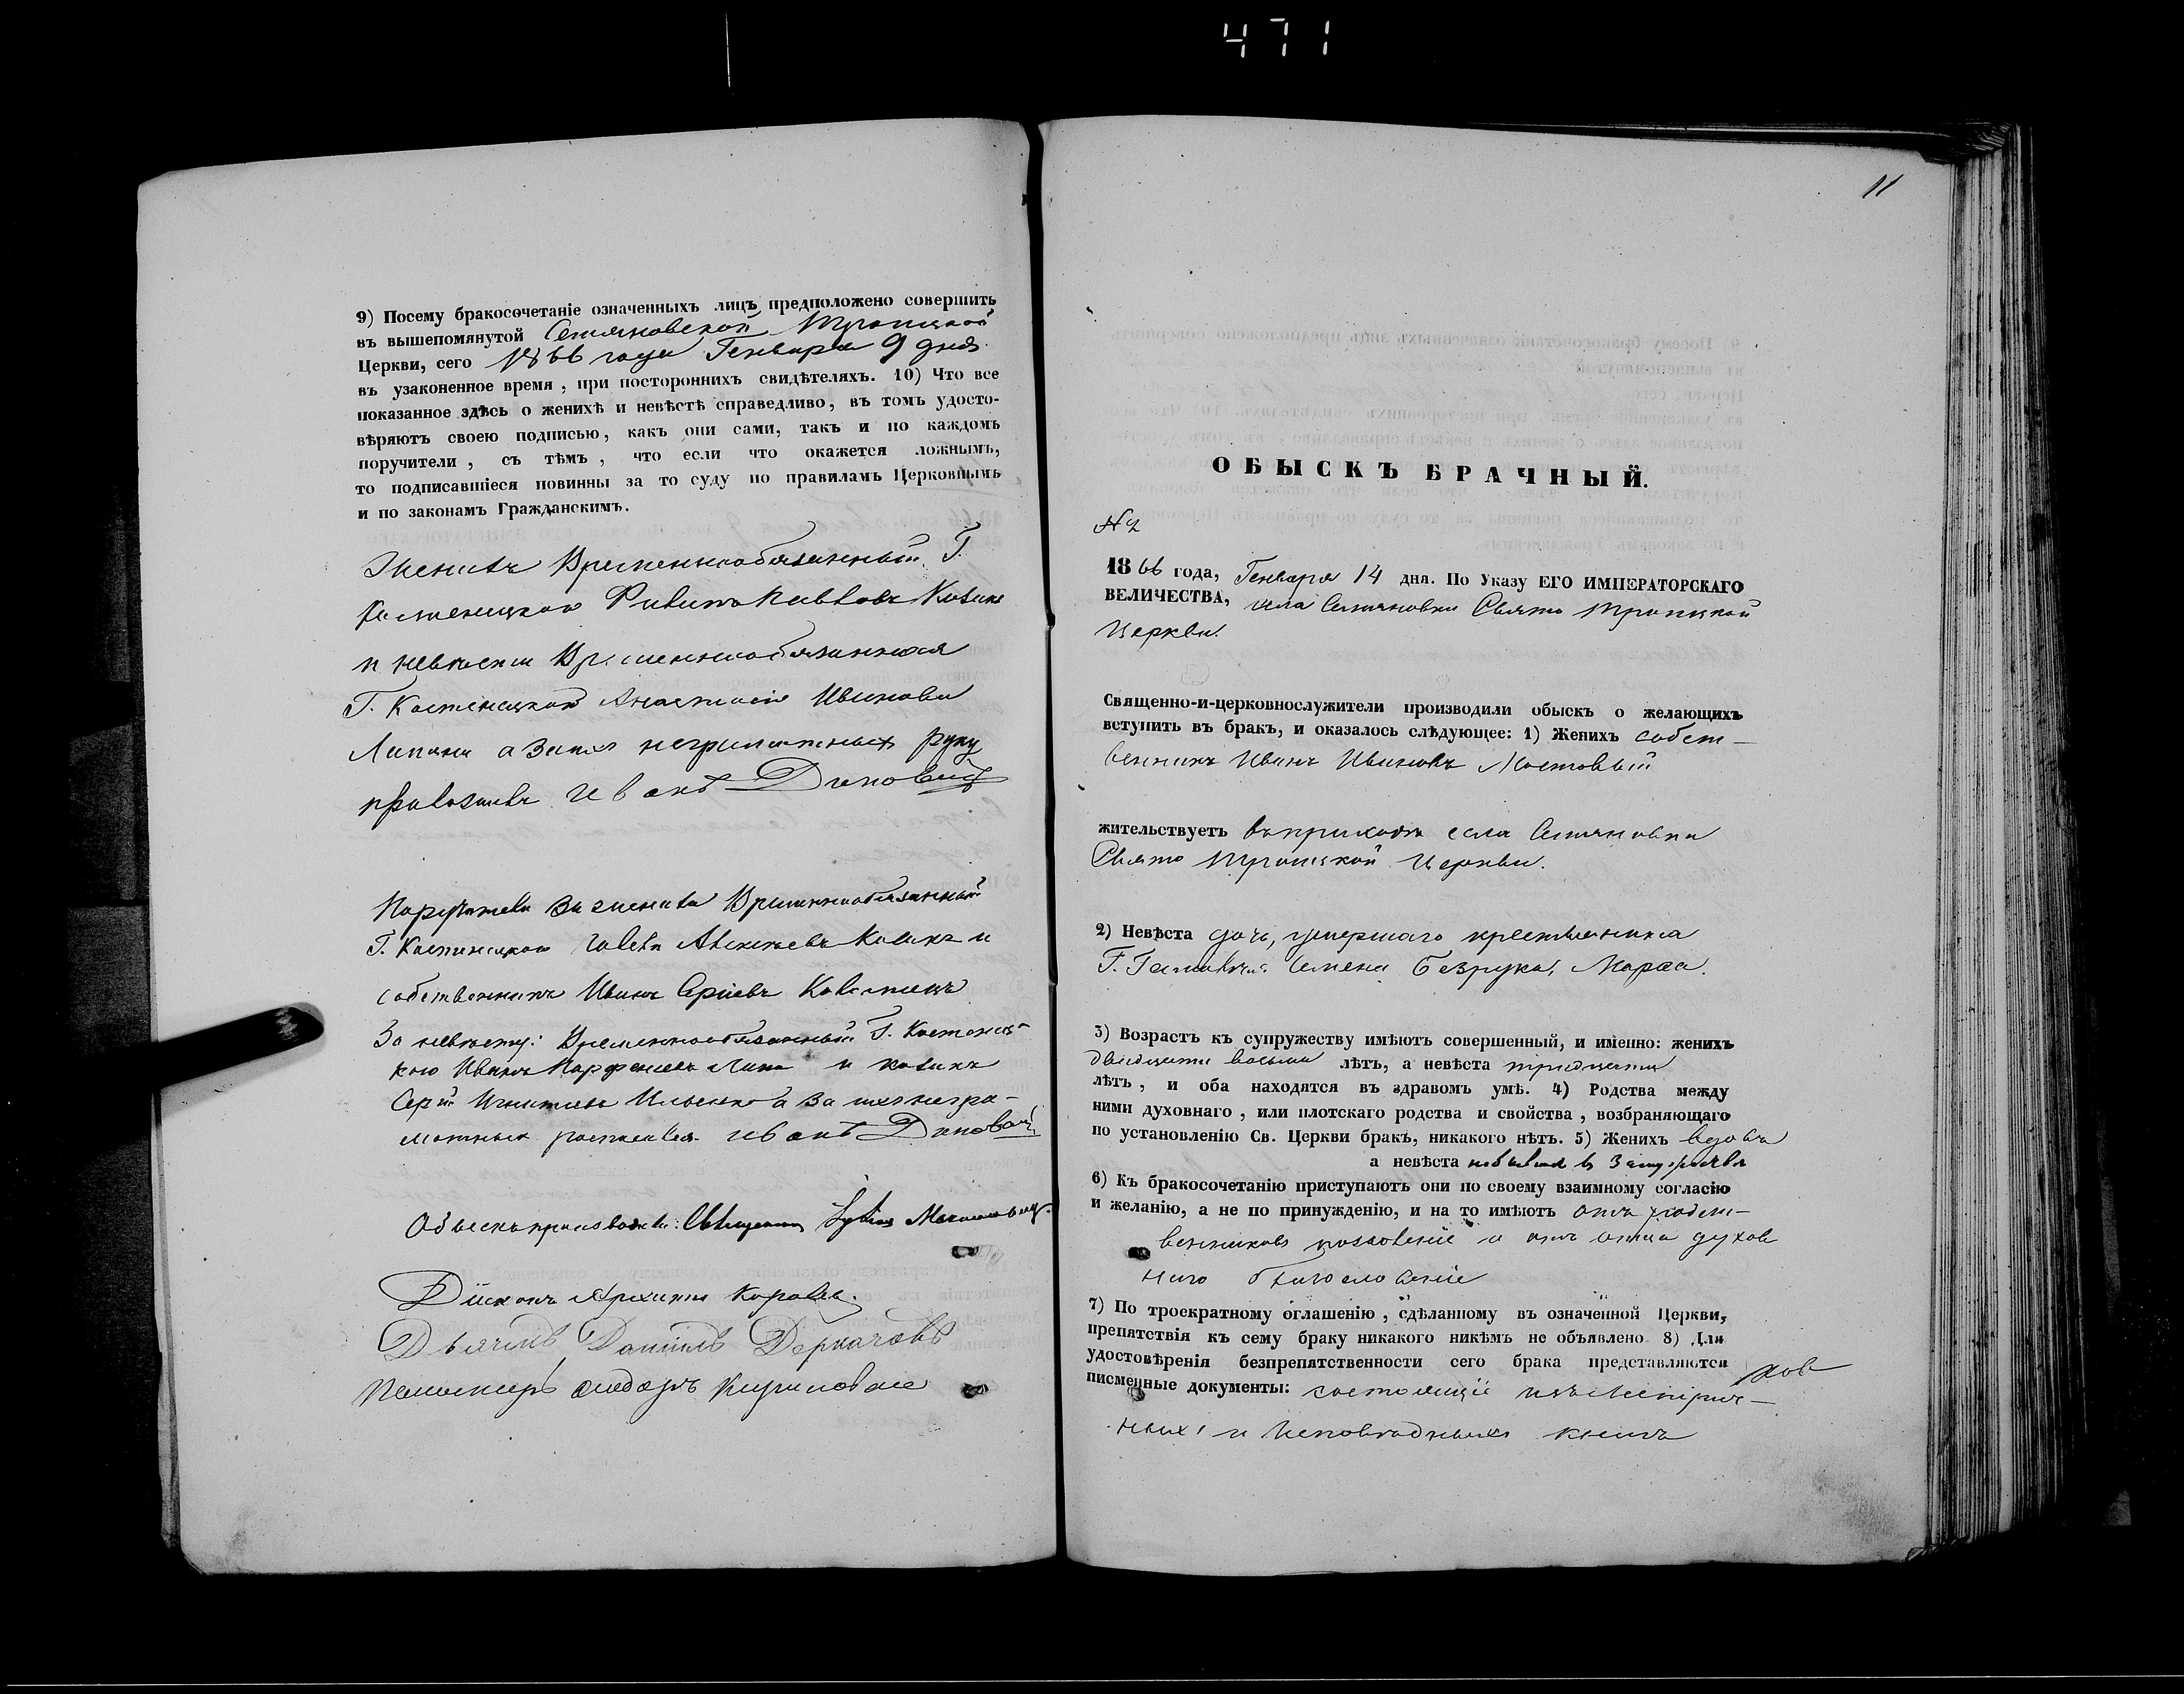 471
9) Посему бракосочетаніе означенныхъ лицъ предположено совершить
въ вышепомянутой Семяновской Троицкой
Церкви, сего 1866 года Генваря 9 дня
въ узаконенное время, при постороннихъ свидѣтеляхъ. 10) Что все
показанное здѣсь о женихѣ и невѣстѣ справедливо, въ томъ удосто-
вѣряютъ своею подписью, какъ они сами, такъ и по каждомъ
поручители, съ тѣмъ, что если что окажется ложнымъ,
то подписавшіеся повинны за то суду по правиламъ Церковнымъ
и по законамъ Гражданскимъ.
Женихъ Временнообязанный Г.
Павловъ
и невѣста Временнообязанная
Г. Костенецкой Анастасія Иванова
а за неграмотныхъ руку
приложилъ Иванъ
Поручатели за жениха Временнообязанный
Г. Костенецкого Алексѣевъ и
собственникъ Иванъ
За невѣсту: Временнообязанный Г. Костенец-
кого Иванъ Парфеньевъ и козакъ
а за негра-
мотныхъ росписался Иванъ
Обыскъ производили: Священникъ
Діаконъ
Дьячекъ Даніилъ Деркачовъ
Пономарь
11
ОБЫСКЪ БРАЧНЫЙ.
№ 2
1866 года, Генваря 14 дня. По Указу ЕГО ИМПЕРАТОРСКАГО
ВЕЛИЧЕСТВА, села Семяновки Свято Троицкой
Церкви.
Священно-и-церковнослужители производили обыскъ о желающихъ
вступить въ бракъ, и оказалось слѣдующее: 1) Женихъ собст-
венникъ Иванъ Ивановъ Мостовый
жительствуетъ въ приходѣ села Семяновки
Свято Троицкой Церкви.
2) Невѣста дочь, умершаго крестьянина
Г. Семена Безрука, Марфа.
3) Возрастъ къ супружеству имѣютъ совершенный, и именно: женихъ
двадцати восьми лѣтъ, а невѣста тридцати
лѣтъ, и оба находятся въ здравомъ умѣ. 4) Родства между
ними духовнаго, или плотскаго родства и свойства, возбраняющаго
по установленію Св. Церкви бракъ, никакого нѣтъ. 5) Женихъ вдовъ
а невѣста небывшая въ замужествѣ
6) Къ бракосочетанію приступаютъ они по своему взаимному согласію
и желанію, а не по принужденію, и на то имѣютъ отъ родст-
венниковъ позволеніе и отъ отца духов
наго благословеніе
7) По троекратному оглашенію, сдѣланному въ означенной Церкви,
препятствія къ сему браку никакого никѣмъ не объявлено 8) Для
удостовѣренія безпрепятственности сего брака представляются
писменные документы: состоящіе изъ Метрич-
ныхъ и Исповѣдныхъ книгъ